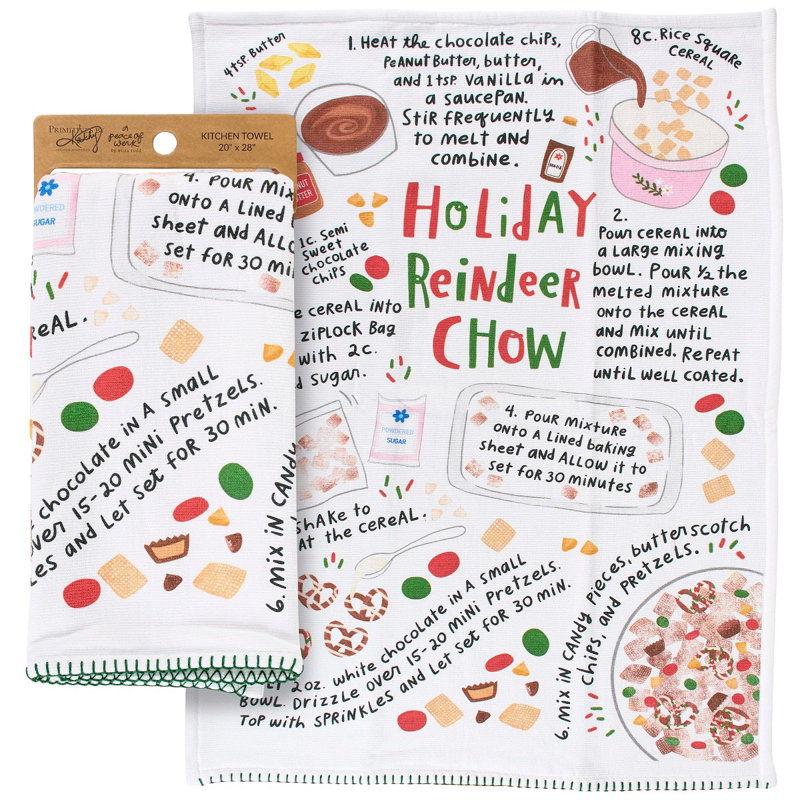 4 tsp. Butter
1. Heat the chocolate chips,
Peanut Butter, butter,
and 1 tsp. vanilla in
a saucepan.
Stir frequently
to melt and
combine.
8c. Rice Square
Cereal
Kathy
a peace of
work
KITCHEN TOWEL
20" x 28"
POWDERED
SUGAR
4. Pour Mix
onto a lined
sheet and allo
set for 30 mi
Butter
1c. Semi
Sweet
Chocolate
Chips
Holiday
Reindeer
Chow
2.
Pour cereal into
a large mixing
bowl. Pour ½ the
melted mixture
onto the cereal
and mix until
combined. Repeat
until well coated.
e cereal into
ziplock Bag
with 2c.
d sugar.
POWDERED
SUGAR
4. Pour mixture
onto a lined baking
sheet and allow it to
set for 30 minutes
shake to
at the cereal.
reал.
chocolate in a small
over 15-20 mini pretzels.
les and let set for 30 min.
6. mix in candy
2 oz. white chocolate in a small
bowl. Drizzle over 15-20 mini pretzels.
Top with sprinkles and let set for 30 min.
6. mix in candy pieces, butterscotch
chips, and pretzels.